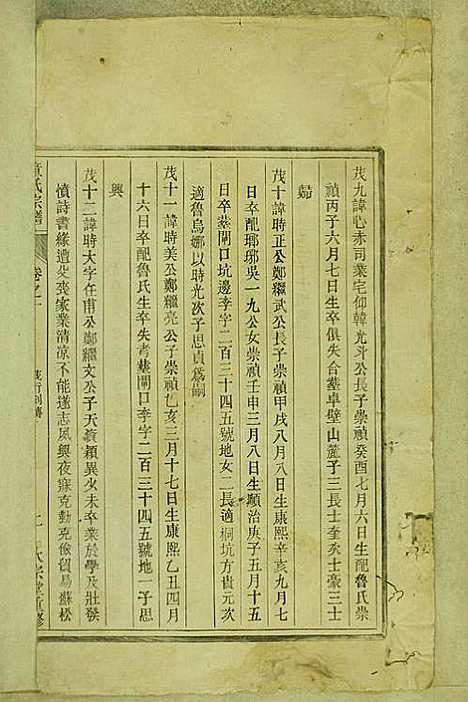 茂九諱心赤司業宅仰韓光斗公長子崇禎癸酉七月六日生配魯氏崇
禎丙子六月七日生卒俱失合塟卓壁山麓子三長士奎次士豪三士
茂十諱時正公鄭繼武公長子崇禎甲戌八月八日生康熙辛亥九月七
日卒配瑯琊吳一九公女崇禎壬申三月八日生順治庚子五月十五
日卒塟閘口坑邊李字二百三十四五號地女二長適桐坑方貴元次
適魯烏娜以時光次子思貞爲嗣
茂十一諱時美公鄭繼亮公子崇禎乙亥三月十七日生康熙乙丑四月
十六日卒配魯氏生卒失考塟閘口李字二百三十四五號地一子思
興
茂十二諱時大字任甫公鄭繼文公子天資穎異少未卒業於學及壯發
憤詩書緣遭家業清凉不能遂志夙興夜寐克勤克儉貿易蘇松
氏宗譜
卷之
茂行列傳